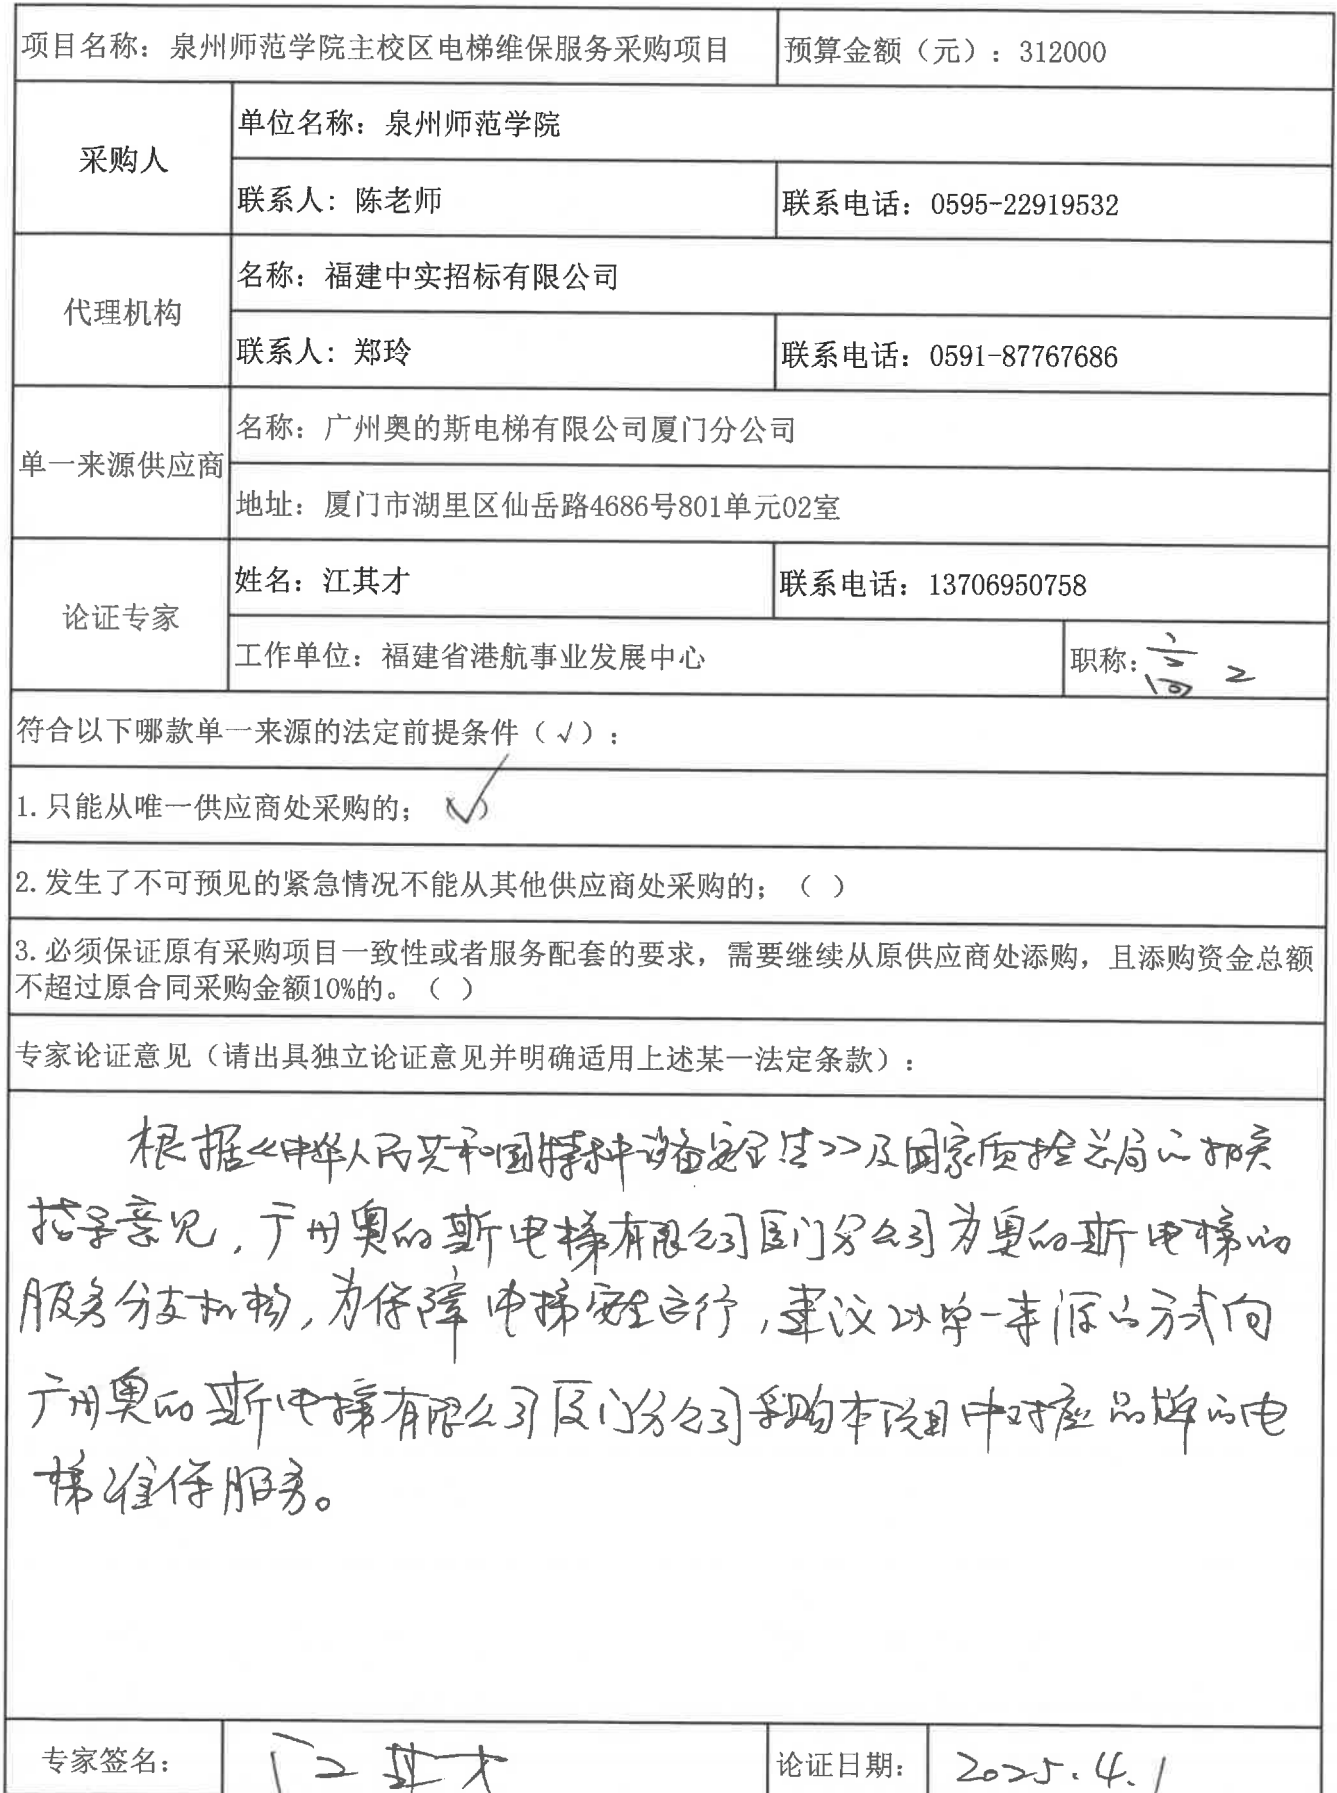 项目名称：泉州师范学院主校区电梯维保服务采购项目 预算金额（元）：312000
采购人
单位名称：泉州师范学院
联系人：陈老师 联系电话：0595-22919532
代理机构
名称：福建中实招标有限公司
联系人：郑玲 联系电话：0591-87767686
单一来源供应商
名称：广州奥的斯电梯有限公司厦门分公司
地址：厦门市湖里区仙岳路4686号801单元02室
论证专家
姓名：江其才 联系电话：13706950758
工作单位：福建省港航事业发展中心 职称：高工
符合以下哪款单一来源的法定前提条件（√）：
1.只能从唯一供应商处采购的；（√）
2.发生了不可预见的紧急情况不能从其他供应商处采购的；（ ）
3.必须保证原有采购项目一致性或者服务配套的要求，需要继续从原供应商处添购，且添购资金总额
不超过原合同采购金额10%的。（ ）
专家论证意见（请出具独立论证意见并明确适用上述某一法定条款）：
根据《中华人民共和国特种设备安全法》及国家质检总局的相关
指导意见，广州奥的斯电梯有限公司厦门分公司为奥的斯电梯的
服务分支机构，为保障电梯安全运行，建议以单一来源的方式向
广州奥的斯电梯有限公司厦门分公司采购本项目中对应品牌的电
梯维保服务。
专家签名： 江其才 论证日期： 2025.4.1